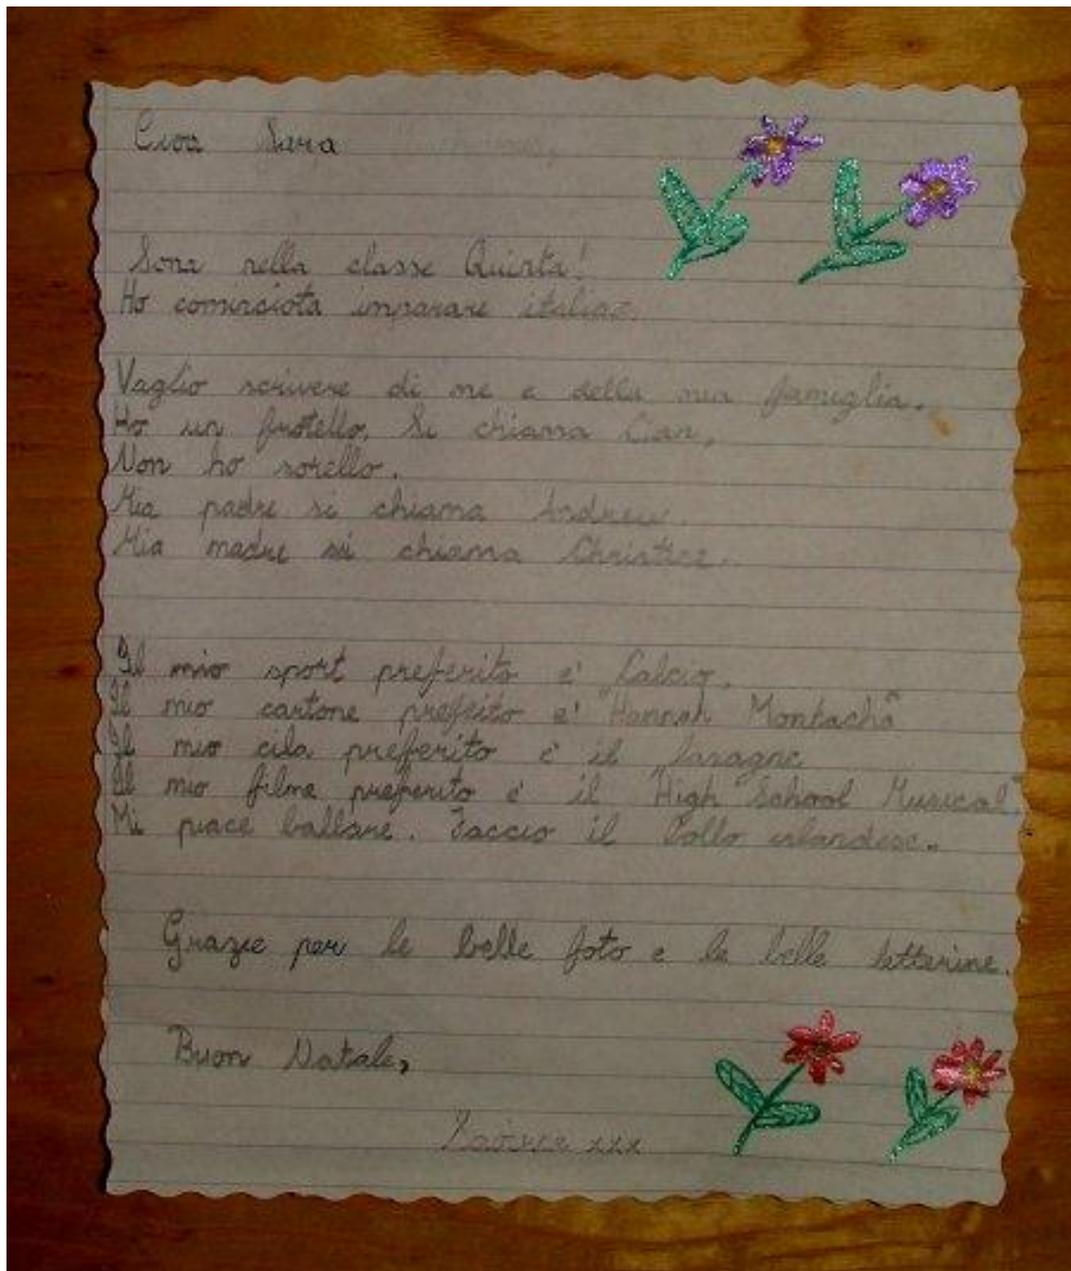 Ciao Sara
Sono nella classe Quinta!
Ho cominciota imparare italiao.
Voglio scrivere di me e della mia famiglia.
Ho un frotello. Si chiama Cian,
Non ho sorello.
Mia padre si chiama Andrew.
Mia madre si chiama Christine.
Il mio sport preferito e' Calcio.
Il mio cartone prefeito e' "Hannah Montacha"
Il mio ciba preferito e' il lasagne
Il mio filme preferito e' il "High School Musical"
Mi piace ballare. Faccio il Bollo irlandese.
Grazie per le belle foto e le belle letterine.
Buon Natale,
xxx